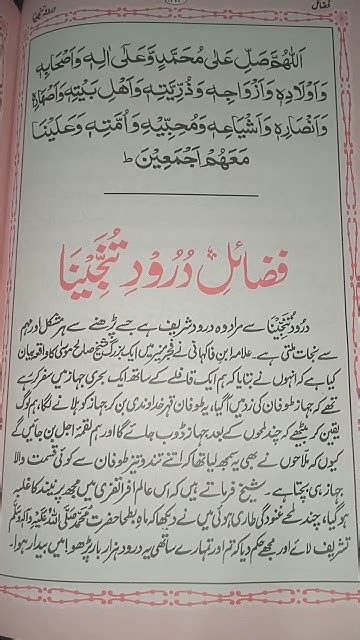 فضائل
اَللّٰهُمَّ صَلِّ عَلٰى مُحَمَّدٍ وَّعَلٰى اٰلِهٖ وَاَصْحَابِهٖ
وَاَوْلَادِهٖ وَاَزْوَاجِهٖ وَذُرِّيَّتِهٖ وَاَهْلِ بَيْتِهٖ وَاَصْهَارِهٖ
وَاَنْصَارِهٖ وَاَشْيَاعِهٖ وَمُحِبِّيْهِ وَاُمَّتِهٖ وَعَلَيْنَا
مَعَهُمْ اَجْمَعِيْنَ ط
فضائل دُرُودِ تُنَجِّينَا
درودِ تُنَجِّینَا سے مراد وہ درود شریف ہے جسے پڑھنے سے ہر مشکل اور مہم
سے نجات ملتی ہے۔ علامہ ابن فاکہانی نے فجر منیر میں ایک بزرگ شیخ صالح موسیٰ کا واقعہ یوں بیان
کیا ہے کہ انہوں نے بتایا کہ ہم ایک قافلے کے ساتھ ایک بحری جہاز میں سفر کر رہے
تھے کہ جہاز طوفان کی زد میں آ گیا، یہ طوفان قہرِ خداوندی بن کر جہاز کو ہلانے لگا، ہم لوگ
یقین کر بیٹھے کہ چند لمحوں کے بعد جہاز ڈوب جائے گا اور ہم لقمۂ اجل بن جائیں گے
کیوں کہ ملاحوں نے بھی یہ سمجھ لیا تھا کہ اتنے تند و تیز طوفان سے کوئی قسمت والا
جہاز ہی بچتا ہے۔ شیخ فرماتے ہیں کہ اس عالم افراتفری میں مجھ پر نیند کا غلبہ
ہو گیا، چند لمحے غنودگی طاری ہوئی میں نے دیکھا کہ ماہِ بطحا حضرت محمد صلی اللہ علیہ وآلہ وسلم
تشریف لائے اور مجھے حکم دیا کہ تم اور تمہارے ساتھی یہ درود ہزار بار پڑھو! میں بیدار ہوا۔